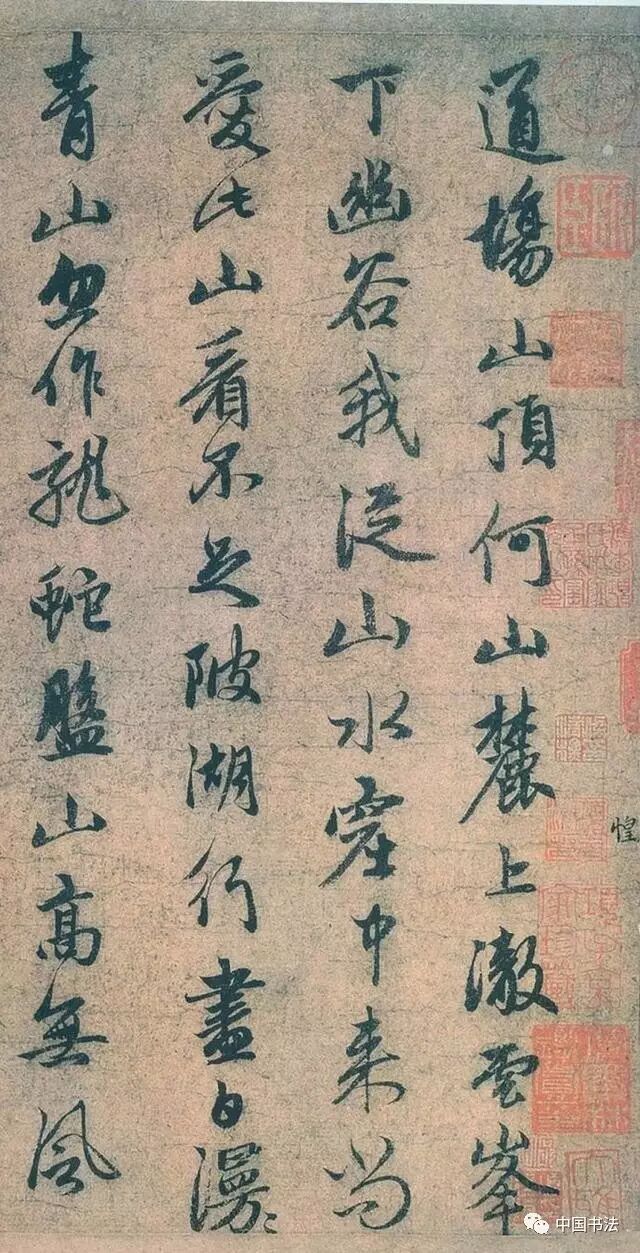 道場山頂何山麓上澈雲峯
下幽谷我從山水窟中来尚
愛此山看不足陂湖行盡白漫〻
青山忽作龍蛇盤山高無風
惶
中国书法